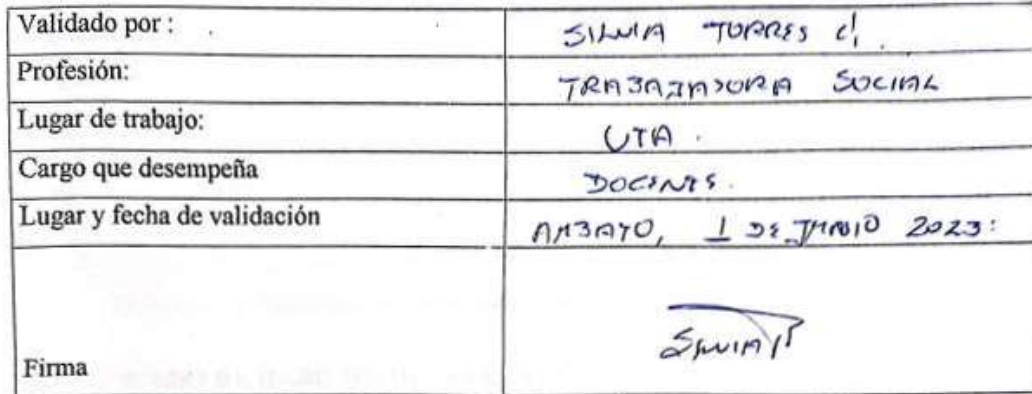 Validado por : SILVIA TORRES C.
Profesión: TRABAJADORA SOCIAL
Lugar de trabajo: UTA.
Cargo que desempeña DOCENTE.
Lugar y fecha de validación AMBATO, 1 DE JUNIO 2023.
Firma Silvia T